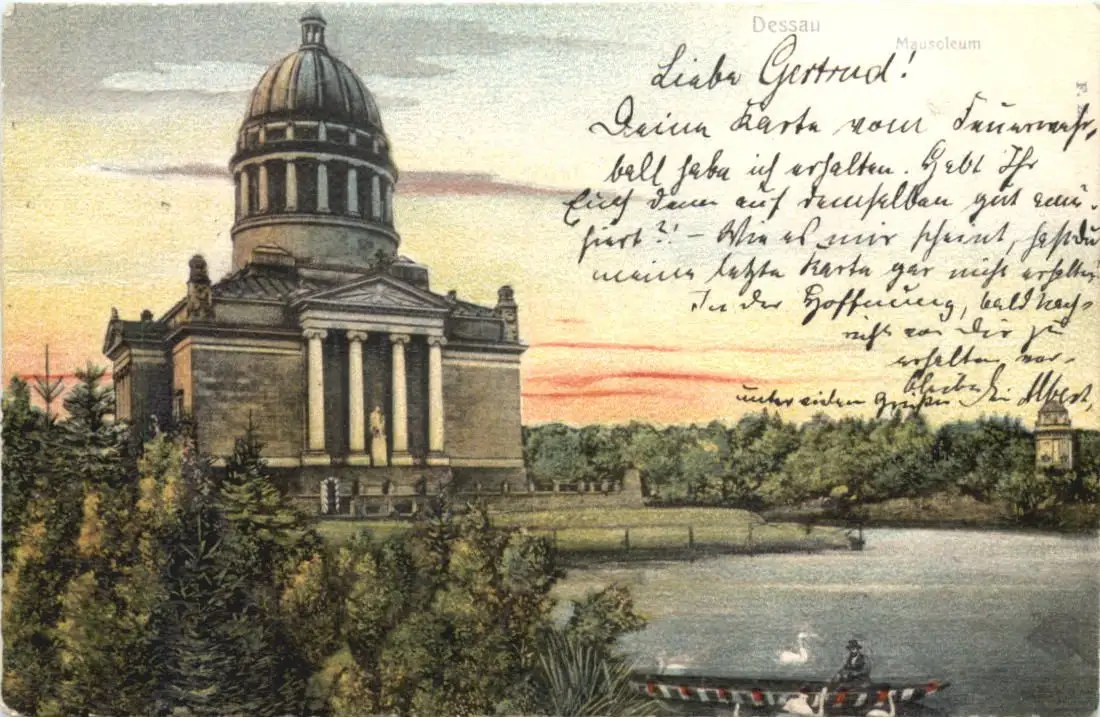 Dessau
Mausoleum
Liebe Gertrud!
Deine Karte vom Feuerwehr-
ball habe ich erhalten. Habt Ihr
Euch denn auf demselben gut amü-
siert?! – Wie es mir scheint, hast du
meine letzte Karte gar nicht erhalten.
In der Hoffnung, bald Nach-
richt von Dir zu
erhalten, ver-
bleibe
unter vielen Grüßen Dein Albert.